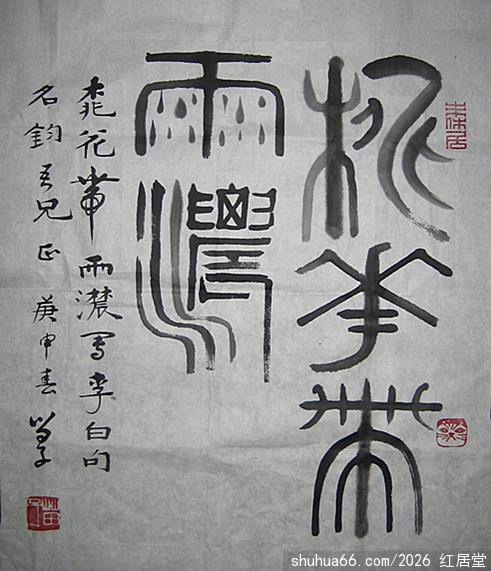 桃華帶
雨濃
桃花帶雨濃写李白句
名鈞吾兄正 庚申春
shuhua66.com/2026 红居堂